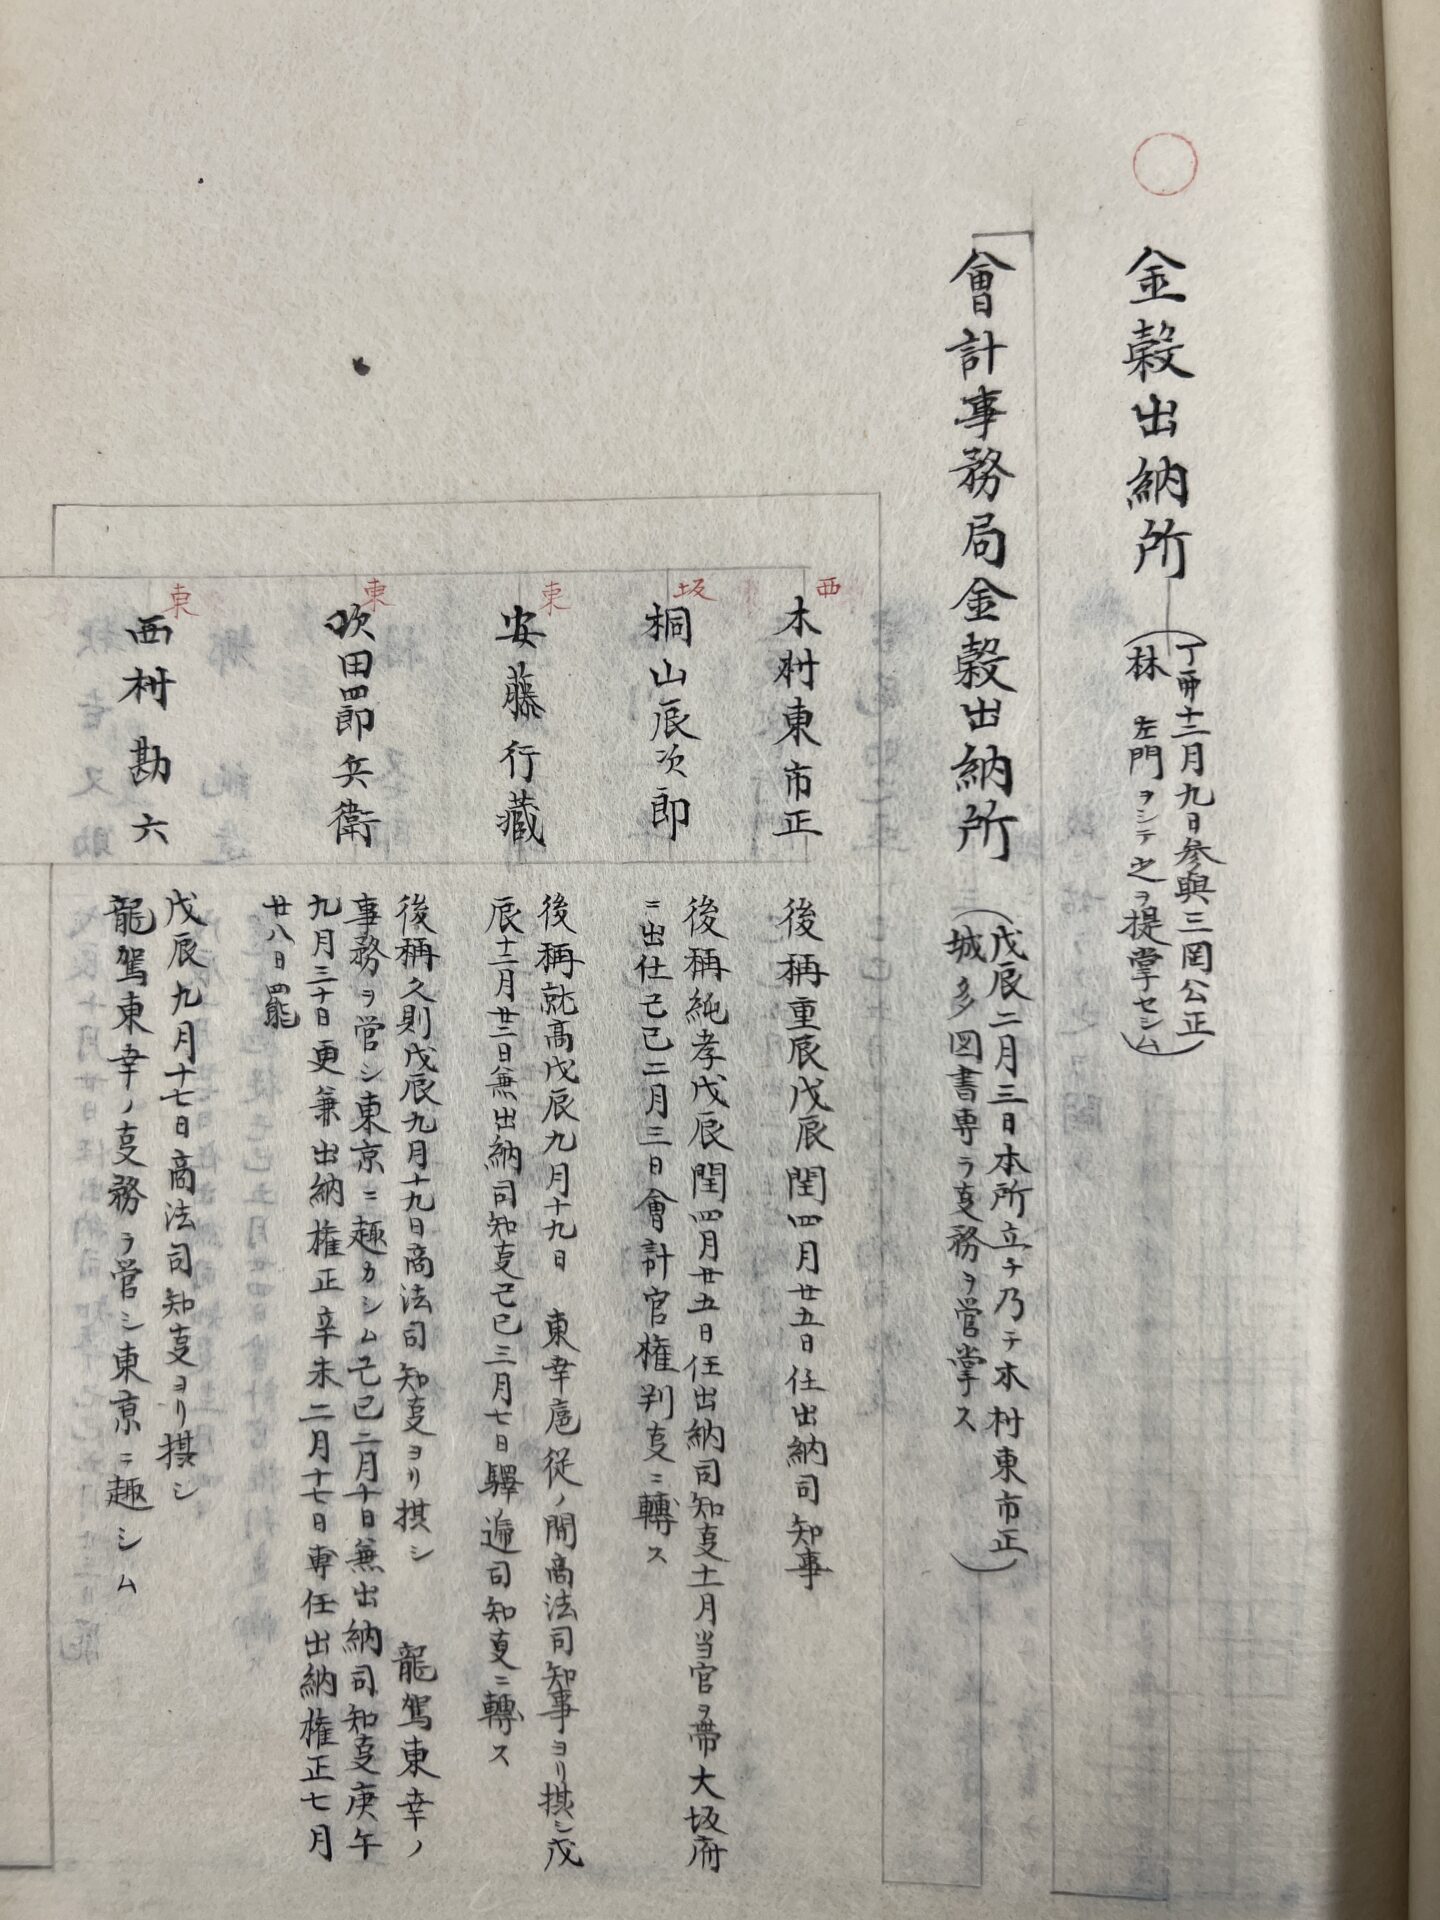 金穀出納所
丁卯十二月九日参與三岡公正
林 左門ヲシテ之ヲ提掌セシム
會計事務局金穀出納所
戊辰二月三日本所立チ乃チ木村東市正
城多図書専ラ事務ヲ管掌ス
西
木村東市正
後称重辰戊辰閏四月廿五日任出納司知事
坂
桐山辰次郎
後称純孝戊辰閏四月廿五日任出納司知事十一月当官ヲ帯大坂府
ニ出仕己巳二月三日會計官権判事ニ轉ス
東
安藤行藏
後称就高戊辰九月十九日 東幸扈従ノ間商法司知事ヨリ摂シ戊
辰十二月廿二日兼出納司知事己巳三月七日驛逓司知事ニ轉ス
東
吹田四郎兵衛
後称久則戊辰九月十九日商法司知事ヨリ摂シ 龍駕東幸ノ
事務ヲ管シ東京ニ趣カシム己巳二月十日兼出納司知事庚午
九月三十日更兼出納権正辛未二月十七日専任出納権正七月
廿八日罷
東
西村勘六
戊辰九月十七日商法司知事ヨリ摂シ
龍駕東幸ノ事務ヲ管シ東京ニ趣シム